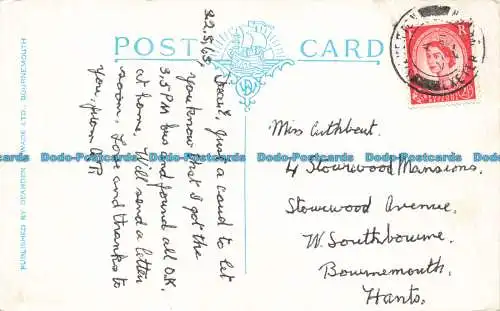 POST CARD
22.5.63,
Dear E, Just a card to let
you know that I got the
3.5 PM bus and found all O.K.
at home. Will send a letter
soon. Love and thanks to
you, from
Miss Cuthbert.
4 Stourwood Mansions.
Stourwood Avenue,
W. Southbourne.
Bournemouth.
Hants.
PUBLISHED BY DEARDEN & WADE LTD., BOURNEMOUTH
Dodo-Postcards Dodo-Postcards Dodo-Postcards Dodo-Postcards Dodo-Postcards